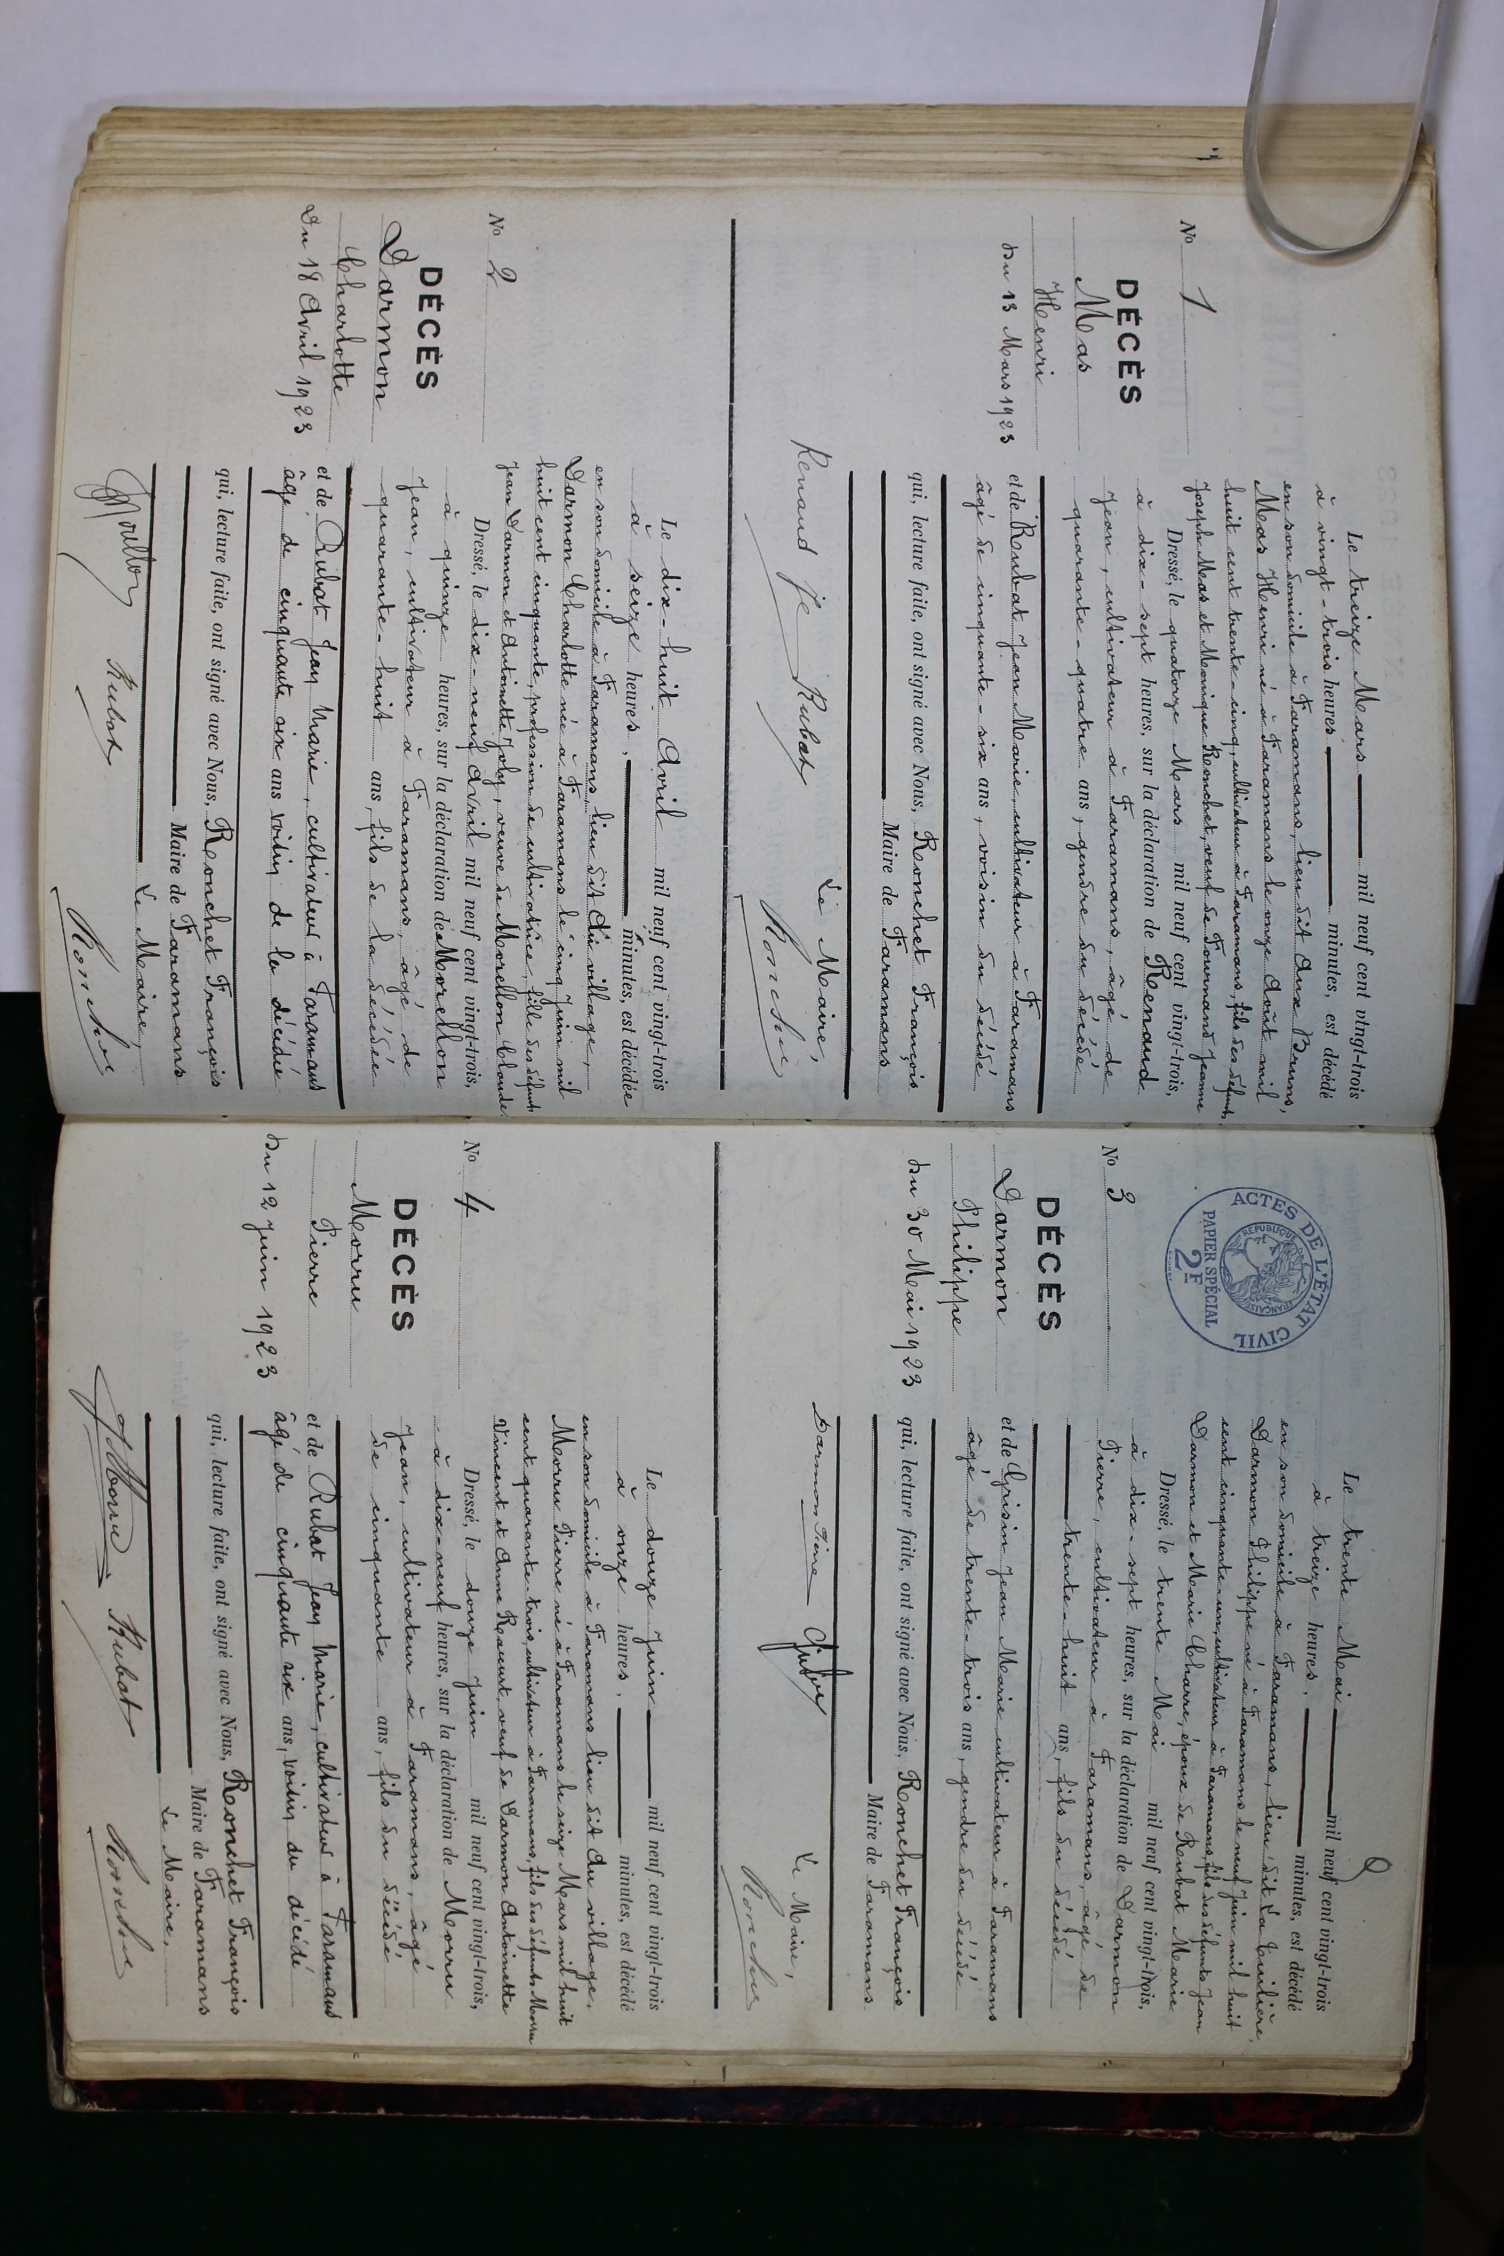 No 1
DÉCÈS
Mas
Henri
Du 13 Mars 1923
Le treize Mars mil neuf cent vingt-trois
à vingt-trois heures minutes, est décédé
en son domicile à Faramans, lieu dit Aux Bruns,
Mas Henri né à Faramans le onze Août mil
huit cent trente-cinq, cultivateur à Faramans, fils des défunts
Joseph Mas et Monique Ronchet, veuf de Tournand Jeanne
Dressé, le quatorze Mars mil neuf cent vingt-trois,
à dix-sept heures, sur la déclaration de Renaud
Jean, cultivateur à Faramans, âgé de
quarante-quatre ans, gendre du décédé
et de Rubat Jean Marie, cultivateur à Faramans
âgé de cinquante-six ans, voisin du décédé
qui, lecture faite, ont signé avec Nous, Ronchet François
Maire de Faramans
Le Maire,
Renaud Je Rubat Ronchet
No 2
DÉCÈS
Darmon
Charlotte
Du 18 Avril 1923
Le dix-huit Avril mil neuf cent vingt-trois
à seize heures, minutes, est décédée
en son domicile à Faramans, lieu dit Au village,
Darmon Charlotte née à Faramans le cinq Juin mil
huit cent cinquante, profession de cultivatrice, fille des défunts
Jean Darmon et Antoinette Joly, veuve de Morellon Claude
Dressé, le dix-neuf Avril mil neuf cent vingt-trois,
à quinze heures, sur la déclaration de Morellon
Jean, cultivateur à Faramans, âgé de
quarante-huit ans, fils de la décédée
et de Rubat Jean Marie, cultivateur à Faramans
âgé de cinquante six ans voisin de la décédée
qui, lecture faite, ont signé avec Nous, Ronchet François
Maire de Faramans
Le Maire,
Rubat Ronchet
ACTES DE L'ÉTAT CIVIL
RÉPUBLIQUE FRANÇAISE
PAPIER SPÉCIAL
2F
No 3
DÉCÈS
Darmon
Philippe
Du 30 Mai 1923
Le trente Mai mil neuf cent vingt-trois
à treize heures, minutes, est décédé
en son domicile à Faramans, lieu dit La Tuilière,
Darmon Philippe né à Faramans le neuf Juin mil huit
cent cinquante-un, cultivateur à Faramans, fils des défunts Jean
Darmon et Marie Charre, époux de Rubat Marie
Dressé, le trente Mai mil neuf cent vingt-trois,
à dix-sept heures, sur la déclaration de Darmon
Pierre, cultivateur à Faramans, âgé de
trente-huit ans, fils du décédé
et de Grisin Jean Marie cultivateur à Faramans
âgé de trente-trois ans, gendre du décédé
qui, lecture faite, ont signé avec Nous, Ronchet François
Maire de Faramans
Le Maire,
Darmon Pierre Ronchet
No 4
DÉCÈS
Morru
Pierre
Du 12 Juin 1923
Le douze Juin mil neuf cent vingt-trois
à onze heures, minutes, est décédé
en son domicile à Faramans lieu dit Au village,
Morru Pierre né à Faramans le seize Mars mil huit
cent quarante-trois, cultivateur à Faramans, fils des défunts Morru
Vincent et Anne Racurt, veuf de Darmon Antoinette
Dressé, le douze Juin mil neuf cent vingt-trois,
à dix-neuf heures, sur la déclaration de Morru
Jean, cultivateur à Faramans, âgé
de cinquante ans, fils du décédé
et de Rubat Jean Marie, cultivateur à Faramans
âgé de cinquante six ans, voisin du décédé
qui, lecture faite, ont signé avec Nous, Ronchet François
Maire de Faramans
Le Maire,
J Morru Rubat Ronchet